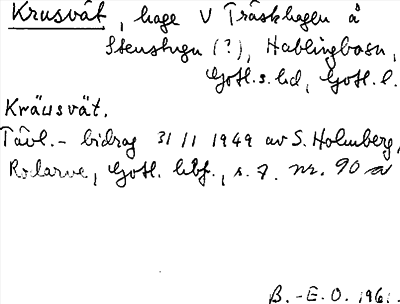 Krusvät, hage V Träskhagen å
Stenstugu (?), Hablingbosn,
Gotl.s.hd, Gotl.l.
Kräusvät.
Tävl.- bidrag 31/1 1949 av S. Holmberg,
Rodarve, Gotl. hbf., s. 7. nr. 90 a
B.-E.O. 1961.